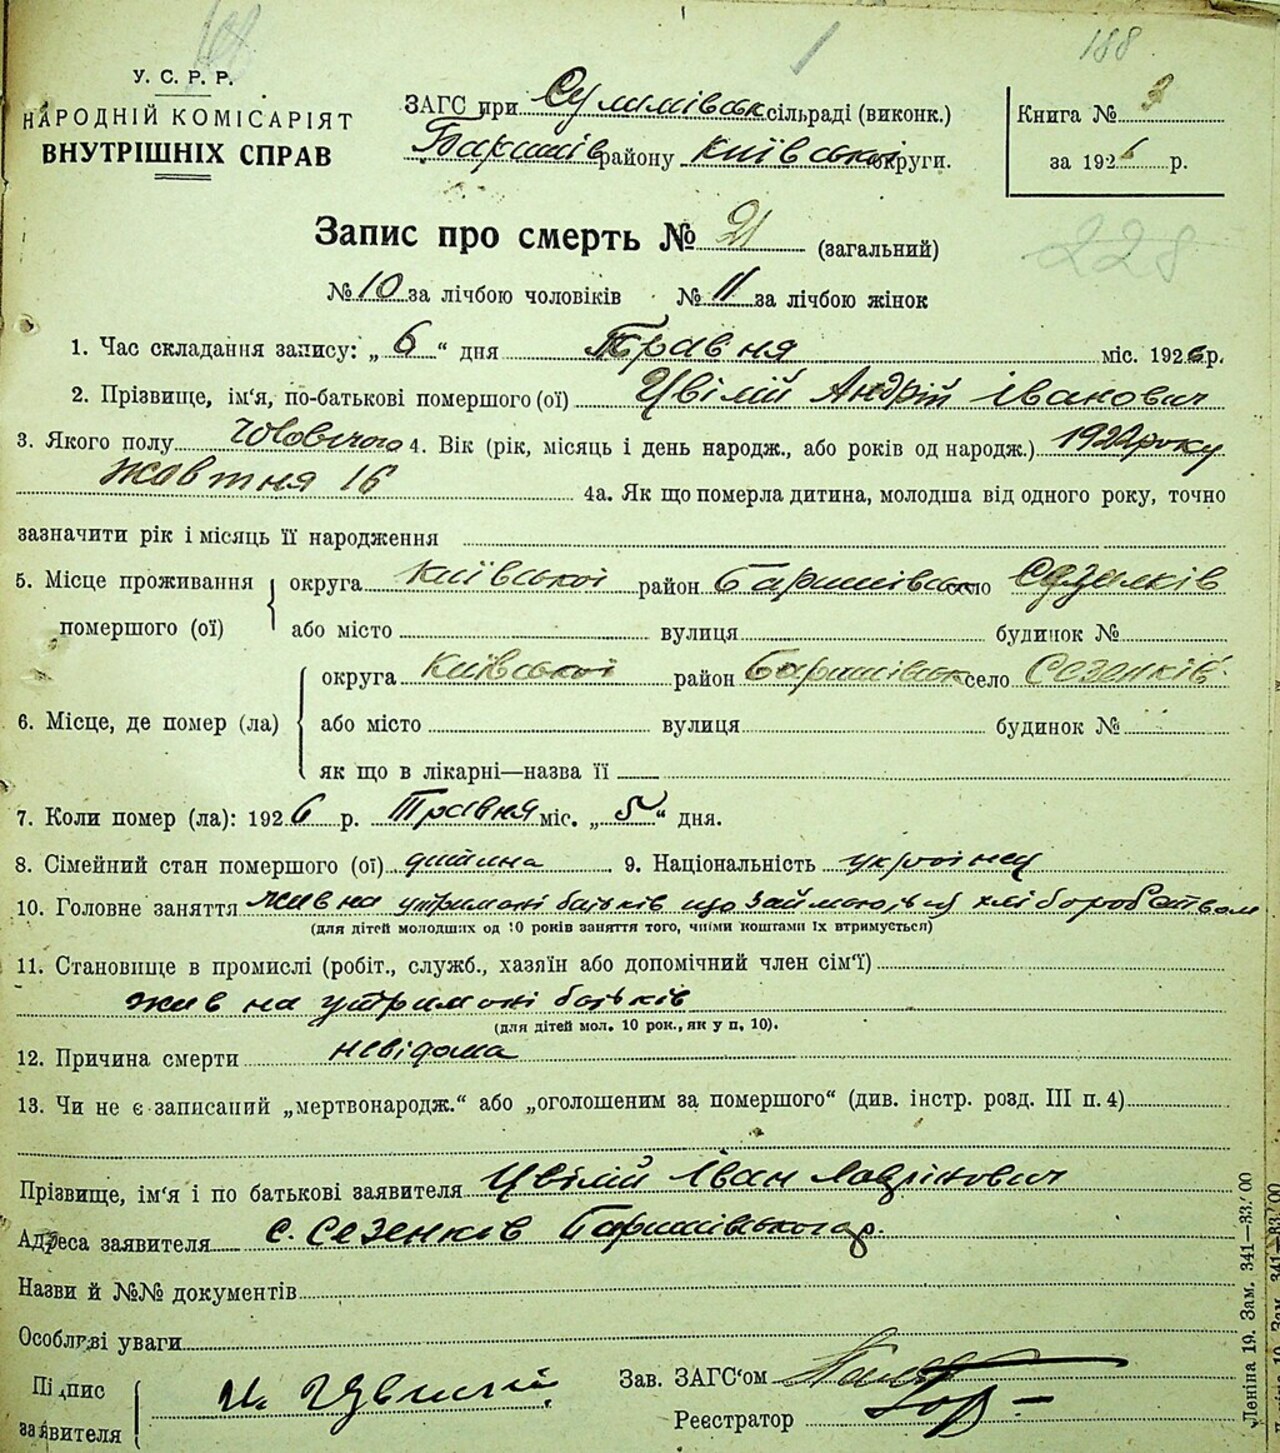 188
У. С. Р. Р.
НАРОДНІЙ КОМІСАРІЯТ
ВНУТРІШНІХ СПРАВ
ЗАГС при Сулимівськ сільраді (виконк.)
Баришів району Київської округи.
Книга № 3
за 1926 р.
Запис про смерть № 21 (загальний)
228
№ 10 за лічбою чоловіків № 11 за лічбою жінок
1. Час складання запису: „ 6 “ дня Травня міс. 1926 р.
2. Прізвище, ім'я, по-батькові помершого (ої) Цвілій Андрій Іванович
3. Якого полу Чоловічого 4. Вік (рік, місяць і день народж., або років од народж.) 1922 року
жовтня 16 4а. Як що померла дитина, молодша від одного року, точно
зазначити рік і місяць її народження
5. Місце проживання помершого (ої) округа Київської район Баришівськ село Сезенків
або місто вулиця будинок №
6. Місце, де помер (ла) округа Київської район Баришівськ село Сезенків
або місто вулиця будинок №
як що в лікарні—назва її
7. Коли помер (ла): 1926 р. Травня міс. „ 5 “ дня.
8. Сімейний стан помершого (ої) дитина 9. Національність українец
10. Головне заняття жив на утримані батьків що займаються хліборобством
(для дітей молодших од 10 років заняття того, чиїми коштами їх втримується)
11. Становище в промислі (робіт., служб., хазяїн або допомічний член сім'ї)
жив на утримані батьків
(для дітей мол. 10 рок., як у п. 10).
12. Причина смерти невідома
13. Чи не є записаний „мертвонародж.“ або „оголошеним за помершого“ (див. інстр. розд. III п. 4)
Прізвище, ім'я і по батькові заявителя Цвілій Іван Лаврінович
Адреса заявителя с. Сезенків Баришівського р.
Назви й №№ документів
Особливі уваги
Підпис заявителя И. Цвилий
Зав. ЗАГС'ом
Реєстратор
Леніна 19. Зам. 341—33/00